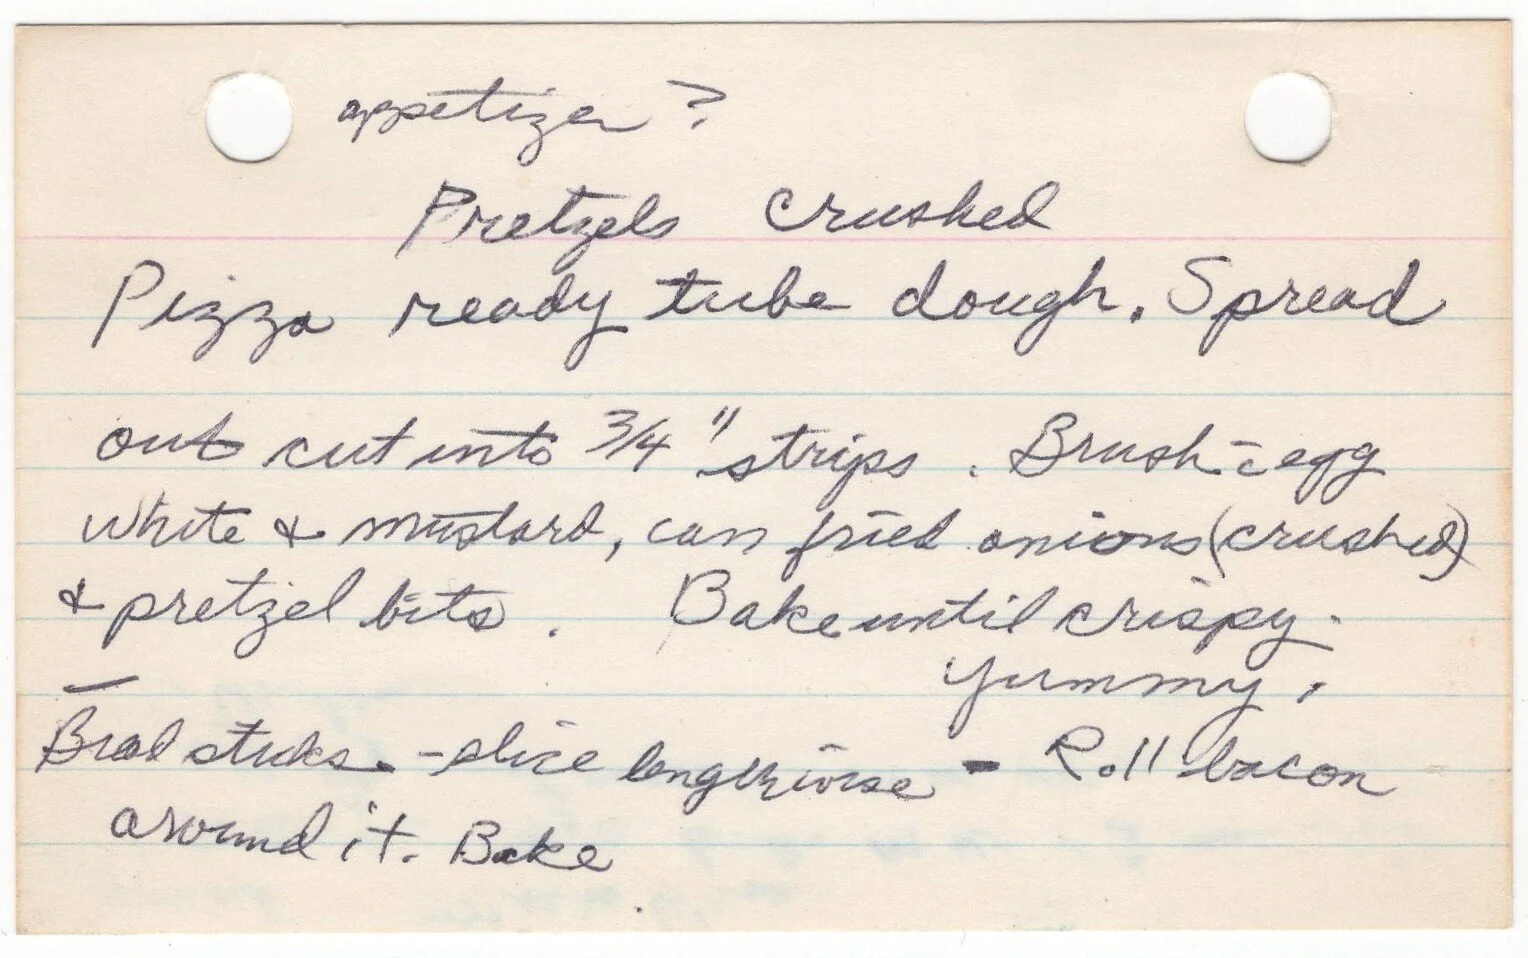 appetizer ?
Pretzels crushed
Pizza ready tube dough. Spread
out cut into 3/4" strips. Brush c̄ egg
white & mustard, can fried onions (crushed)
& pretzel bits. Bake until crispy.
Yummy.
Bread sticks - slice lengthwise - Roll bacon
around it. Bake